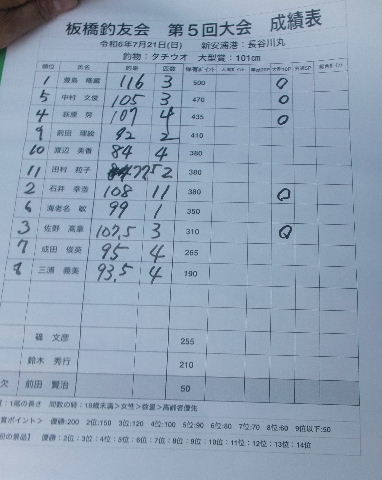 板橋釣友会 第5回大会 成績表
令和6年7月21日(日) 新安浦港:長谷川丸
釣物:タチウオ 大型賞:101cm
順位 氏名 釣果 匹数 保有ポイント
1 116 3 500 O
5 中村 文俊 105 3 470 O
4 萩原 努 107 4 435 O
9 前田 92 2 410
10 渡辺 美香 84 4 380
11 田村 粒子 775 2 380
2 石井 幸浩 108 11 380 O
6 海老名 敏 99 1 350
3 佐野 高章 107.5 3 310 O
7 成田 俊英 95 4 265
8 三浦 義美 93.5 4 190
篠 文彦 255
鈴木 秀行 210
欠 前田 賢治 50
:1尾の長さ 同数の時:18歳未満>女性>数量>高齢者優先
賞ポイント> 優勝:200 2位:150 3位:120 4位:100 5位:90 6位:80 7位:70 8位:60 9位以下:50
の景品】 優勝:2位:3位:4位:5位:6位:7位:8位:9位:10位:11位:12位:13位:14位